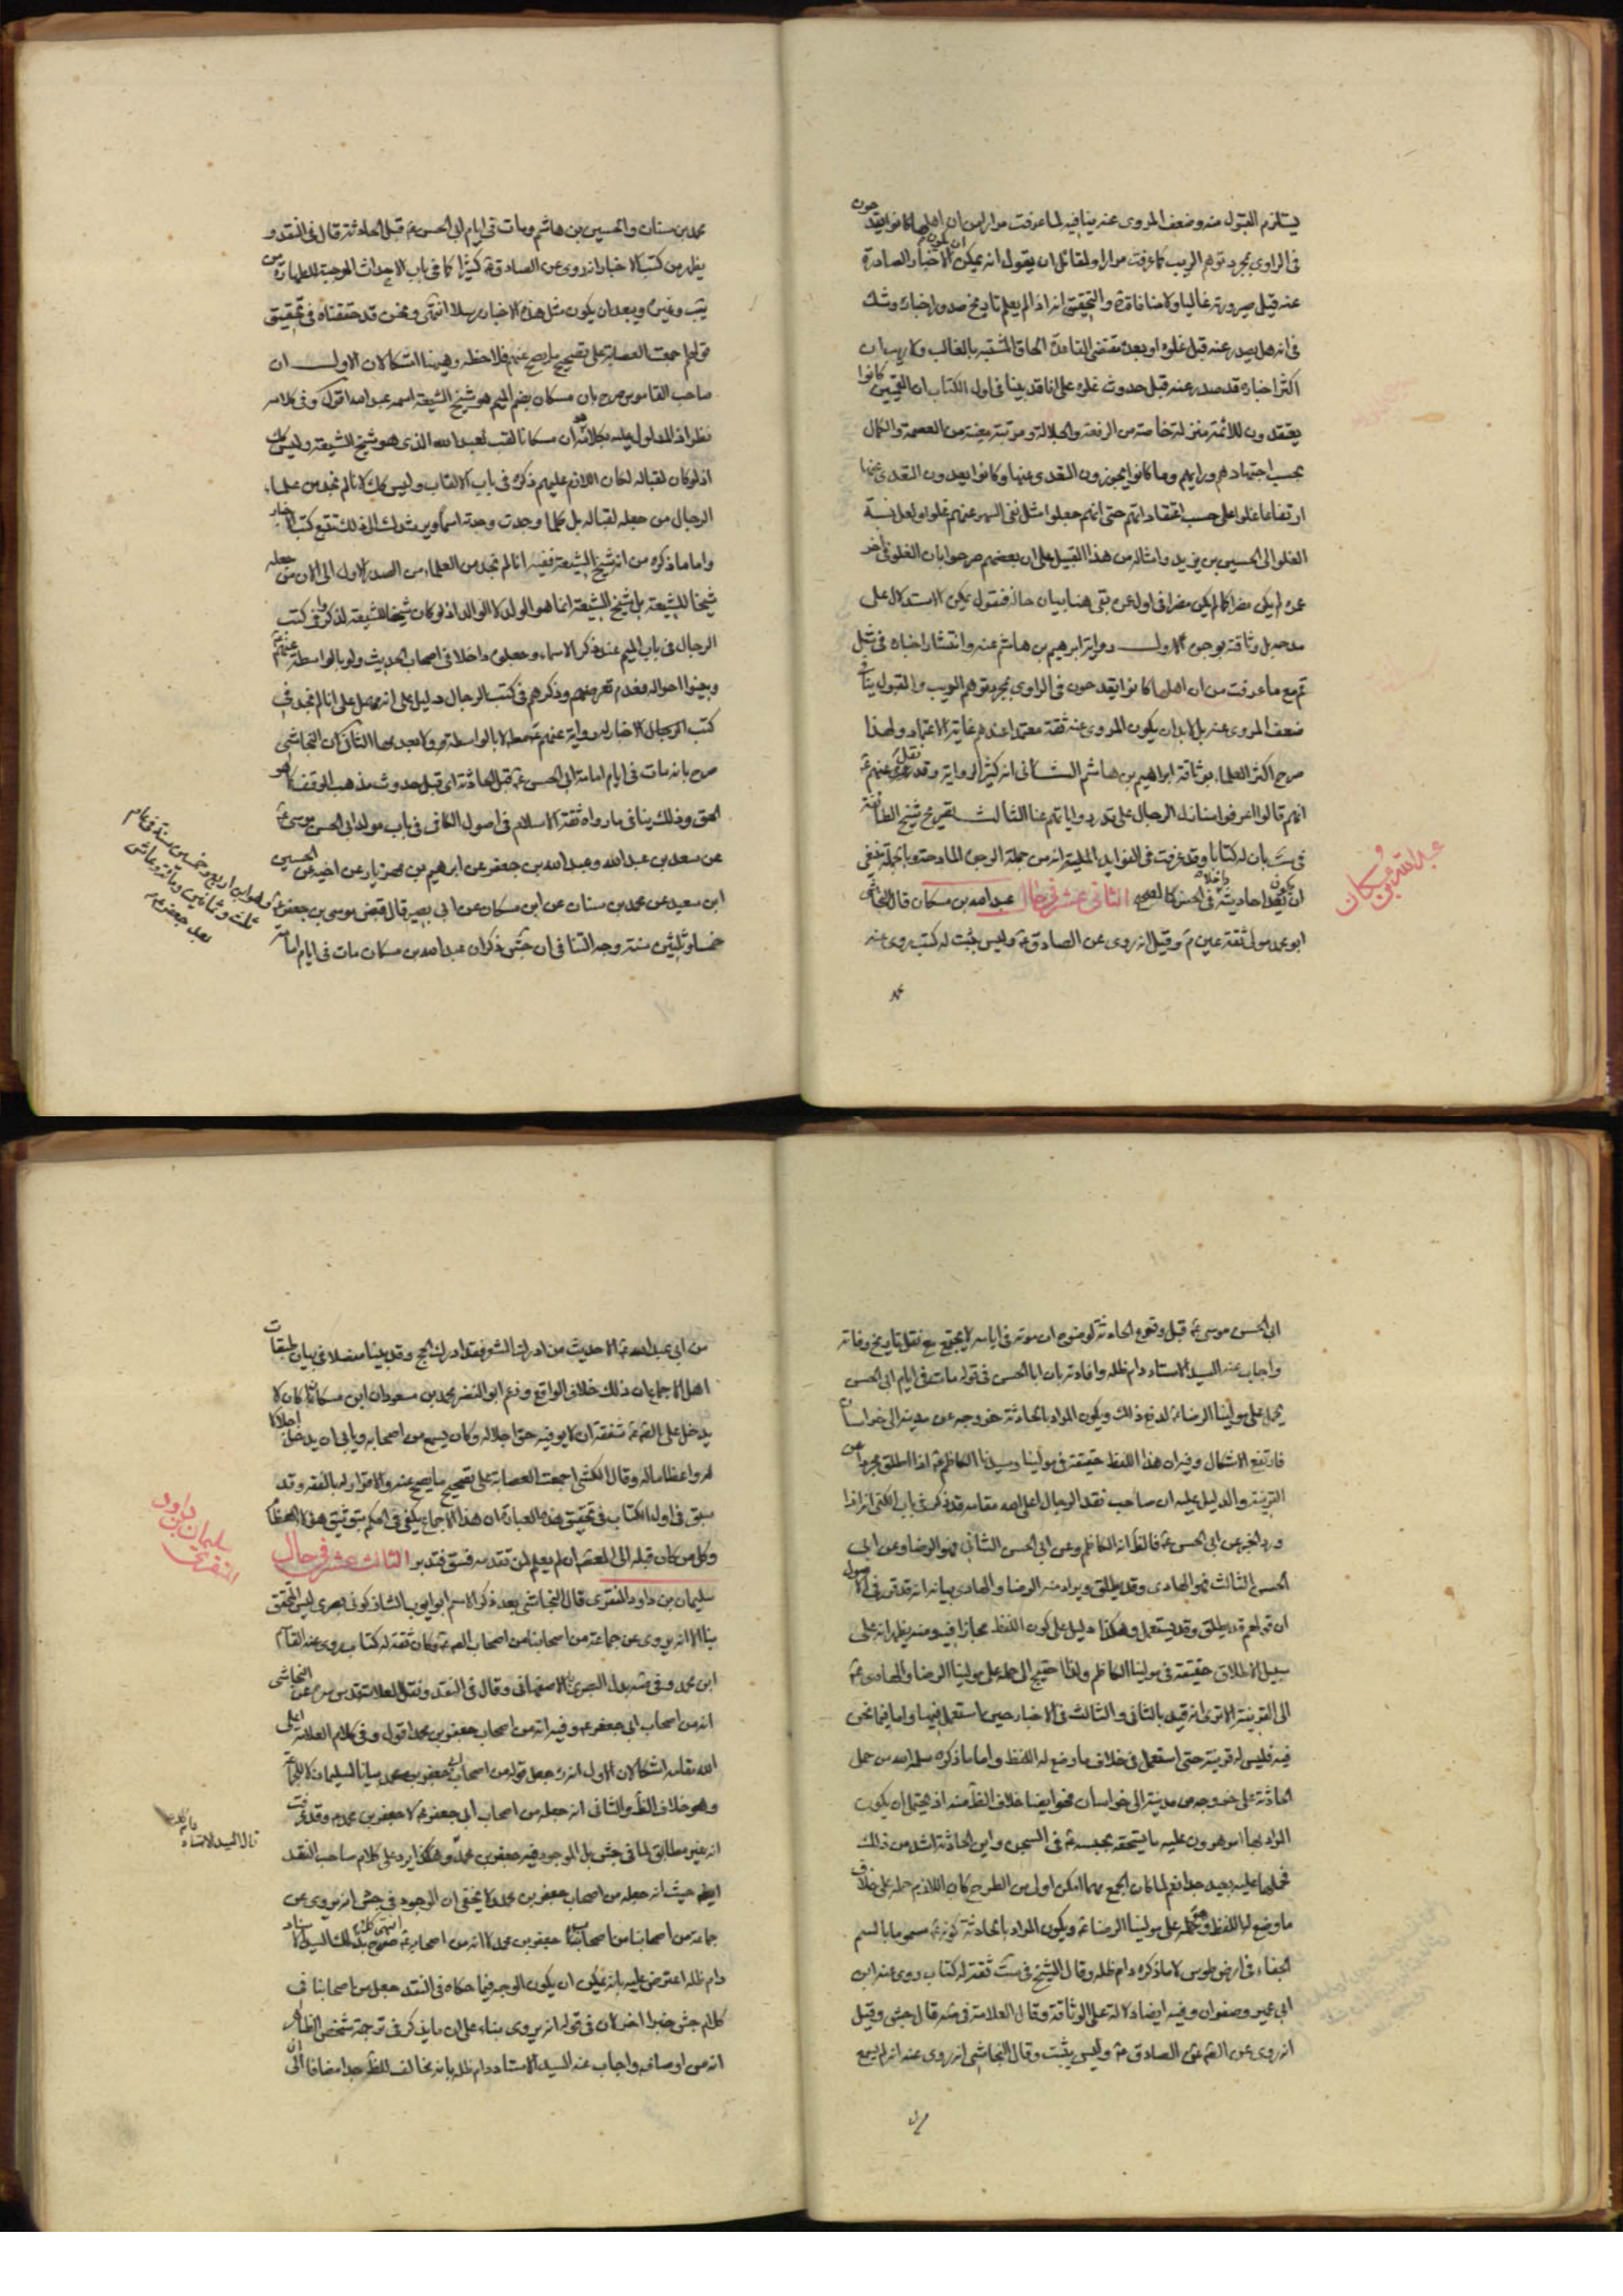 يستلزم القبول منه وضعف المروى عنه ينافيه لما عرفت مرارا من ان اهلها كانوا يقدحون
فى الراوى بمجرد توهم الريب كما عرفت مرارا ولقائل ان يقول انه يمكن ان يكون الاخبار الصادرة
عنه قبل صيرورته غاليا ولا منافاة والتحقيق انه اذا لم يعلم تاريخ صدور اخباره وشك
فى انه هل صدر عنه قبل غلوه او بعده مقتضى القاعدة الحاق المشتبه بالغالب ولا ريب ان
اكثر اخباره قد صدر عنه قبل حدوث غلوه على انا قد بينا فى اول الكتاب ان القميين كانوا
يعتقدون للائمة منزلة خاصة من الرفعة والجلالة ومرتبة معينة من العصمة والكمال
بحسب اجتهادهم ورايهم وما كانوا يجوزون التعدى عنها وكانوا يعدون التعدى عنها
ارتفاعا وغلوا على حسب اعتقادهم حتى انهم جعلوا مثل نفى السهو عنهم غلوا ولعل نسبة
الغلو الى الحسين بن يزيد وامثاله من هذا القبيل على ان بعضهم صرحوا بان الغلو فى آخر
عمره لم يكن مضرا كما لم يكن مضرا فى اول عمره بقى هنا بيان حاله فنقول يمكن الاستدلال على
مدحه بل وثاقته بوجوه الاول رواية ابراهيم بن هاشم عنه وانتشار اخباره فى مثل
قم مع ما عرفت من ان اهلها كانوا يقدحون فى الراوى بمجرد توهم الريب والقبول ينافى
ضعف المروى عنه بل لابد ان يكون المروى عنه ثقة معتمدا عندهم غاية الاعتماد ولهذا
صرح اكثر العلماء بوثاقة ابراهيم بن هاشم الثانى انه كثير الرواية وقد نقل عنهم ع
انهم قالوا اعرفوا منازل الرجال على قدر رواياتهم عنا الثالث تصريح شيخ الطائفة
فى ست بان له كتابا وقد عرفت فى الفوايد الجليلة انه من جملة الوجوه المادحة وبالجملة ينبغى
ان يكون احاديثه داخلا فى الحسن كالصحيح الثانى عشر فى حال عبد الله بن مسكان قال النجاشى
ابو محمد مولى عنزة ثقة عين وقيل انه روى عن الصادق ع وليس بثبت له كتب روى عنه
محمد
عبد الله بن مسكان
محمد بن سنان والحسين بن هاشم ومات فى ايام ابى الحسن ع قبل الحادثة قال فى النقد و
يظهر من كتب الاخبار انه روى عن الصادق ع كثيرا كما فى باب الاحداث الموجبة للطهارة من
يب وغيره ويبعد ان يكون مثل هذه الاخبار مرسلا انتهى ونحن قد حققناه فى تحقيق
قولهم اجمعت العصابة على تصحيح ما يصح عنهم فلاحظ وهيهنا اشكالان الاول ان
صاحب القاموس صرح بان مسكان بضم الميم هو شيخ الشيعة اسمه عبد الله اقول وفى كلامه
نظر اذ المدلول عليه بكلامه هو ان مسكانا لقب لعبد الله الذى هو شيخ الشيعة وليس كك
اذ لو كان لقبا له لكان اللازم عليهم ذكره فى باب الالقاب وليس كك لانا لم نجد من علماء
الرجال من جعله لقبا له بل كلما وجدت وجدته اسما ويرشدك الى ذلك تتبع كتب الاخبار
واما ما ذكره من انه شيخ الشيعة ففيه انا لم نجد من العلماء من الصدر الاول الى الان من جعله
شيخا للشيعة بل شيخ الشيعة انما هو الولد لا الوالد اذ لو كان شيخا للشيعة لذكروه فى كتب
الرجال فى باب الميم عند ذكر الاسماء وجعلوه داخلا فى اصحاب الحديث ولو بالواسطة عنهم ع
وبينوا احواله فعدم تعرضهم وذكرهم فى كتب الرجال دليل على انه مهمل على انا لم نجد فى
كتب الرجال الاخبار له رواية عنهم ع لا بالواسطة ولا بعدمها الثانى ان النجاشى
صرح بانه مات فى ايام امامة ابى الحسن ع قبل الحادثة اى قبل حدوث مذهب الوقف كما هو
الحق وذلك ينافى ما رواه ثقة الاسلام فى اصول الكافى فى باب مولد ابى الحسن موسى ع
عن سعد بن عبد الله وعبد الله بن جعفر عن ابراهيم بن مهزيار عن اخيه عن الحسين
ابن سعيد عن محمد بن سنان عن ابن مسكان عن ابى بصير قال قبض موسى بن جعفر ع
خمسا وثلثين سنة وجه التنافى ان جش ذكر ان عبد الله بن مسكان مات فى ايام امامة
وهو ابن اربع وخمسين سنة فى عام
ثلث وثمانين ومائة وعاش
بعد جعفر ع
ابى الحسن موسى ع قبل وقوع الحادثة لوضوح ان موته فى ايامه لا يجتمع مع نقل تاريخ وفاته
واجاب عنه السيد الاستاد دام ظله وافادته بان ابا الحسن فى قوله مات فى ايام ابى الحسن
يحمل على مولينا الرضا ع لدفع ذلك ويكون المراد بالحادثة خروجه عن مدينة الى خراسان
فارتفع الاشكال وفيه ان هذا اللفظ حقيقة فى مولينا وسيدنا الكاظم ع اذا اطلق مجردا عن
القرينة والدليل عليه ان صاحب نقد الرجال اعلى الله مقامه قد ذكر فى باب الكنى انه اذا
ورد الخبر عن ابى الحسن ع فالظ انه الكاظم وعن ابى الحسن الثانى فهو الرضا وعن ابى
الحسن الثالث فهو الهادى وقد يطلق ويراد منه الرضا والهادى بيانه انه قد تقرر فى الاصول
ان قولهم قد يطلق وقد يستعمل وهكذا دليل على كون اللفظ مجازا فيه ومنه يظهر انه على
سبيل الاطلاق حقيقة فى مولينا الكاظم ولذا احتيج الى حمله على مولينا الرضا والهادى ع
الى القرينة الا ترى انه قيد بالثانى والثالث فى الاخبار حين ما استعمل فيهما واما فيما نحن
فيه فليس له قرينة حتى استعمل فى خلاف ما وضع له اللفظ واما ما ذكره سلمه الله من حمل
الحادثة على خروجه من مدينة الى خراسان فهو ايضا خلاف الظ منه اذ يحتمل ان يكون
المراد بها امر هرون عليه ما يستحقه بحبسه ع فى السجن واين الحادثة اشد من ذلك
فحملها عليه بعيد جدا نعم لما كان الجمع مهما امكن اولى من الطرح كان اللازم حمله على خلاف
ما وضع له اللفظ وحمله على مولينا الرضا ع ويكون المراد بالحادثة كونه ع مسموما بالسم
الجفاء فى ارض طوس لا ما ذكره دام ظله وقال الشيخ فى ست ثقة له كتاب روى عنه ابن
ابى عمير وصفوان وفيه ايضا دلالة على الوثاقة وقال العلامة فى صه قال جش وقيل
انه روى عن الصادق ع وليس بثبت وقال النجاشى انه روى عنه انه لم يسمع
من ابى عبد الله ع الا حديث من ادرك المشعر فقد ادرك الحج وقد بينا مفصلا فى بيان طبقات
اهل الاجماع ان ذلك خلاف الواقع وزعم ابو النضر محمد بن مسعود ان ابن مسكان كان لا
يدخل على الص ع شفقة ان لا يوفيه حق اجلاله وكان يسمع من اصحابه ويابى ان يدخل اجلالا
له واعظاما له وقال الكشى اجمعت العصابة على تصحيح ما يصح عنه والاقرار له بالفقه وقد
سبق فى اول الكتاب فى تحقيق هذه العبارة ان هذا الاجماع يكفى فى الحكم بتوثيق هؤلاء
وكل من كان قبله الى المعصوم ان لم يعلم لمن تقدمه فسق فتدبر الثالث عشر فى حال
سليمان بن داود المنقرى قال النجاشى بعد ذكر الاسم ابو ايوب الشاذكونى بصرى ليس بالمتحقق
بنا الا انه يروى عن جماعة من اصحابنا من اصحاب الص ع وكان ثقة له كتاب روى عنه القاسم
ابن محمد وفى صه بدل البصرى الاصفهانى وقال فى النقد ونقل العلامة قدس سره عن النجاشى
انه من اصحاب ابى جعفر ع وفيه انه من اصحاب جعفر بن محمد اقول وفى كلام العلامة اعلى
الله مقامه اشكالان الاول انه جعل قوله من اصحاب جعفر بن محمد بيانا لسليمان لا للجماعة
وهو خلاف الظ والثانى انه جعله من اصحاب ابى جعفر ع لا جعفر بن محمد ع وقد عرفت
انه غير مطابق لما فى جش بل الموجود فيه جعفر بن محمد وهكذا يرد على كلام صاحب النقد
ايضا حيث انه جعله من اصحاب جعفر بن محمد ولا يخفى ان الموجود فى جش انه يروى عن
جماعة من اصحابنا من اصحاب جعفر بن محمد لا انه من اصحابه ع انتهى كلامه صرح بذلك السيد الاستاد
دام ظله اعترض عليه بانه يمكن ان يكون الوجه فيما حكاه فى النقد جعل من اصحابنا فى
كلام جش خبرا اخر كان فى قوله انه يروى بناء على ان ما يذكر فى ترجمة شخص الظاهر
انه من اوصافه واجاب عنه السيد الاستاد دام ظله بانه مخالف للظ جدا مضافا الى ان
سليمان بن داود
المنقرى
قال السيد الاستاد